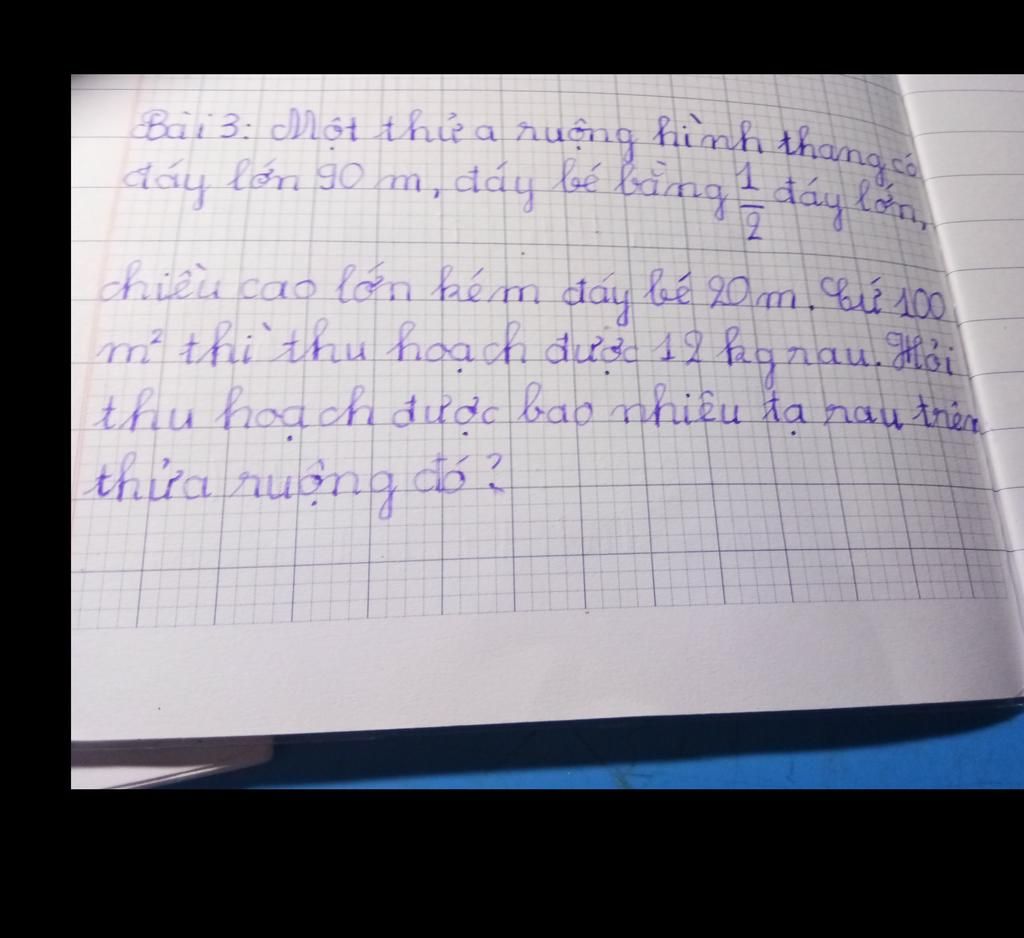 Bài 3: Một thửa ruộng hình thang có
đáy lớn 90 m, đáy bé bằng 1/2 đáy lớn,
chiều cao lớn kém đáy bé 20 m. Cứ 100
m² thì thu hoạch được 12 kg rau. Hỏi
thu hoạch được bao nhiêu tạ rau trên
thửa ruộng đó?